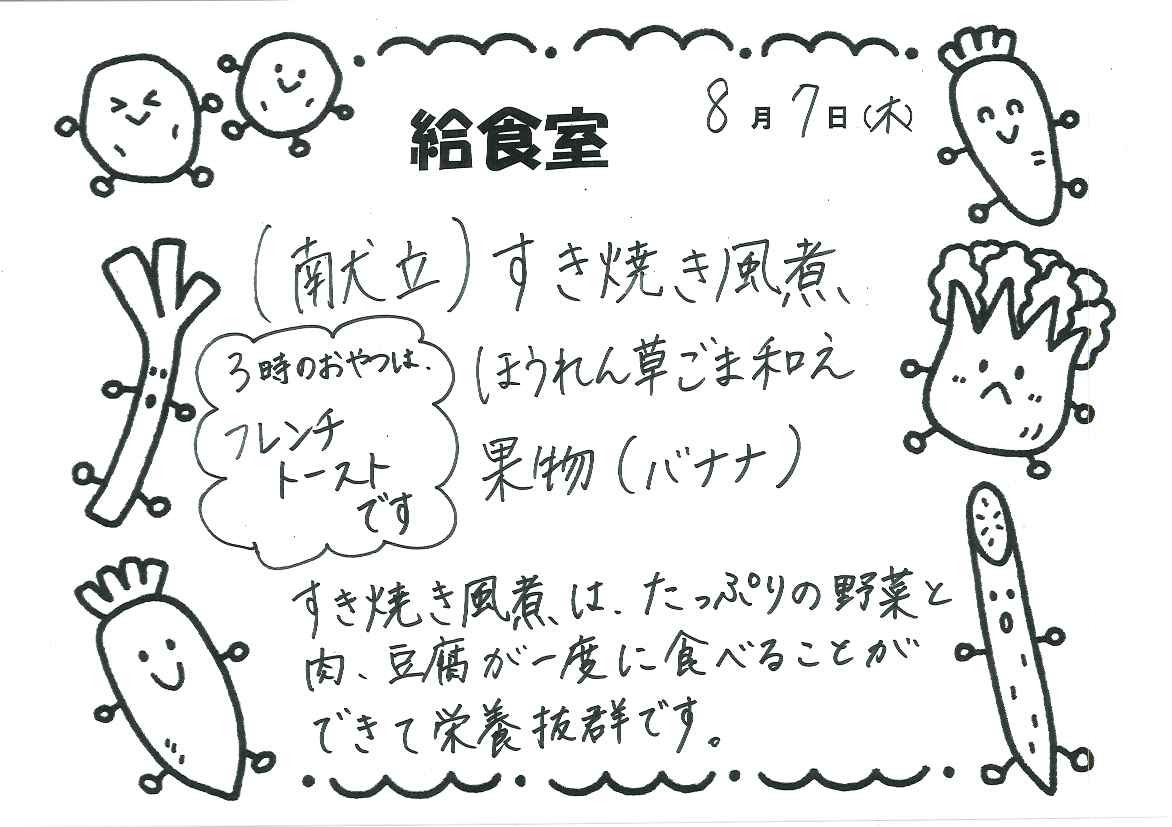 給食室
8月7日(木)
(献立)すき焼き風煮
ほうれん草ごま和え
果物(バナナ)
3時のおやつは、
フレンチ
トースト
です
すき焼き風煮は、たっぷりの野菜と
肉、豆腐が一度に食べることが
できて栄養抜群です。